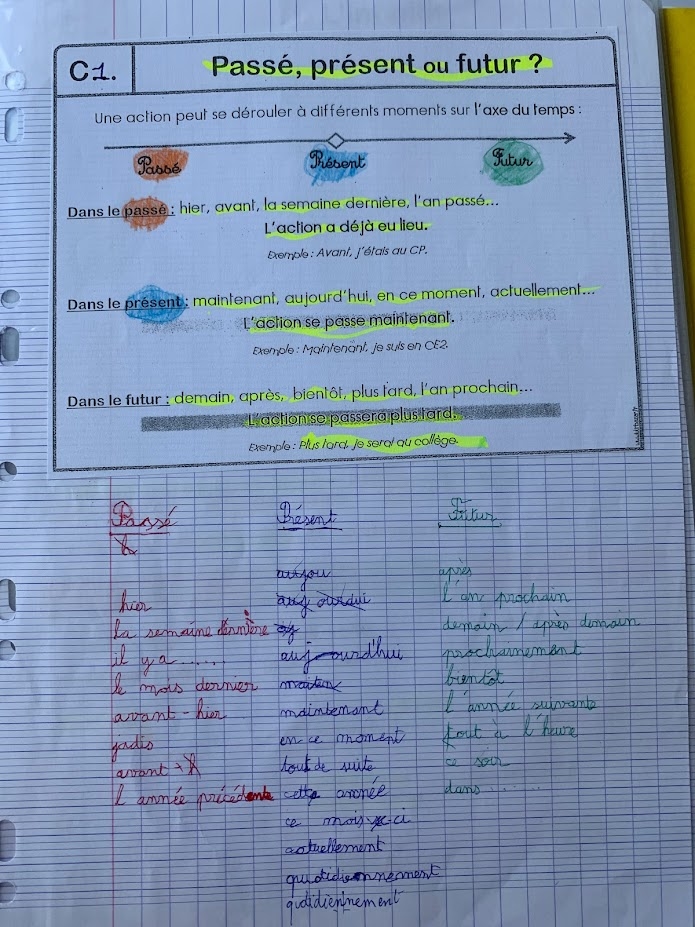 C1.
Passé, présent ou futur ?
Une action peut se dérouler à différents moments sur l'axe du temps :
Passé Présent Futur
Dans le passé : hier, avant, la semaine dernière, l'an passé...
L'action a déjà eu lieu.
Exemple : Avant, j'étais au CP.
Dans le présent : maintenant, aujourd'hui, en ce moment, actuellement...
L'action se passe maintenant.
Exemple : Maintenant, je suis en CE2.
Dans le futur : demain, après, bientôt, plus tard, l'an prochain...
L'action se passera plus tard.
Exemple : Plus tard, je serai au collège.
Passé
hier
la semaine dernière
il y a ......
le mois dernier
avant-hier
jadis
avant
l'année précédente
Présent
aujou
aujourdui
aujourd'hui
mainten
maintenant
en ce moment
tout de suite
cette année
ce mois-ci
actuellement
quotidiennement
quotidiennement
Futur
après
l'an prochain
demain / après demain
prochainement
bientôt
l'année suivante
tout à l'heure
ce soir
dans ......